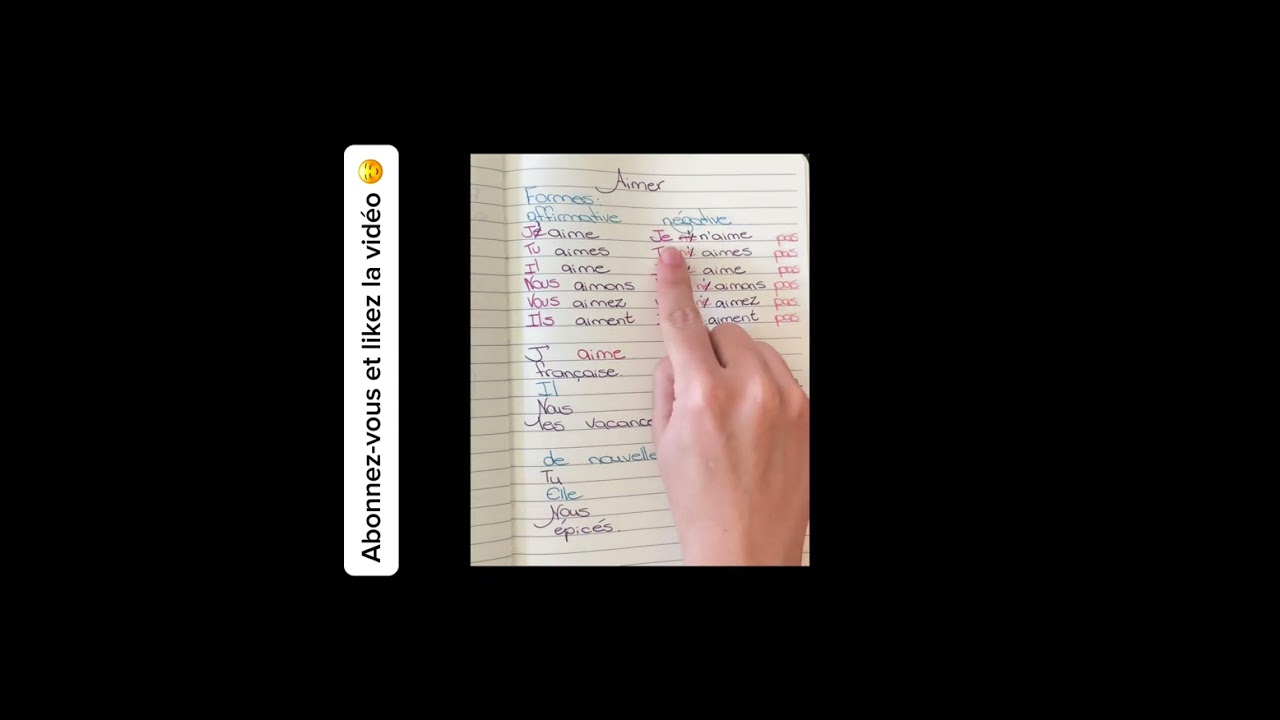 Abonnez-vous et likez la vidéo 😌
Aimer
Formes:
affirmative négative
J' aime Je n'aime pas
Tu aimes aimes pas
Il aime aime pas
Nous aimons aimons pas
Vous aimez aimez pas
Ils aiment aiment pas
J' aime
française.
Il
Nous
les vacance
de nouvelle
Tu
Elle
Nous
épicés.